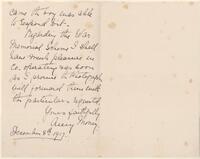 came the boy was able
to respond to it.
Regarding the War
Memorial Scheme I shall
have much pleasure in
co-operating as soon
as I procure the Photograph
will forward them with
the particulars required,
Yours faithfully
Money
December 8th 1917.